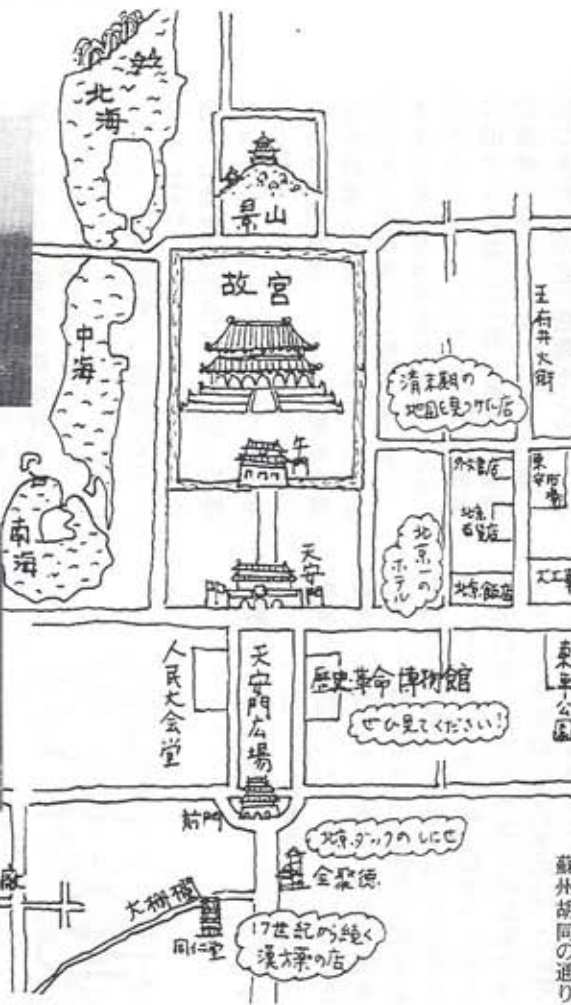 北海
景山
故宮
中海
王府井大街
清末期の
地図を見つけた店
午門
外文書店
東安市場
北京
百貨店
南海
天安門
北京一の
ホテル
北京飯店
人民大会堂
天安門広場
歴史革命博物館
ぜひ見てください!
東単公園
前門
北京ダックのしにせ
全聚徳
大柵欄
同仁堂
17世紀から続く
漢方薬の店
蘇州胡同の通り